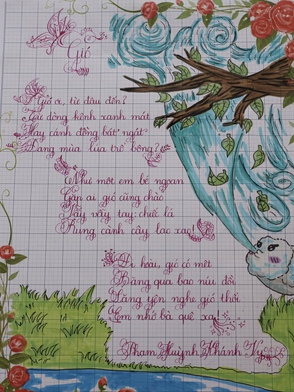 Gió
Gió ơi, từ đâu đến?
Từ dòng kênh xanh mát
Hay cánh đồng bát ngát
Đang mùa lúa trổ bông?
Như một em bé ngoan
Gặp ai gió cũng chào
Vẫy vẫy tay: chiếc lá
Rung cành cây lao xao!
Đi hoài, gió có mệt
Băng qua bao núi đồi
Lắng yên nghe gió thổi
Em nhớ bà quê xa!
Phạm Huỳnh Khánh Vy